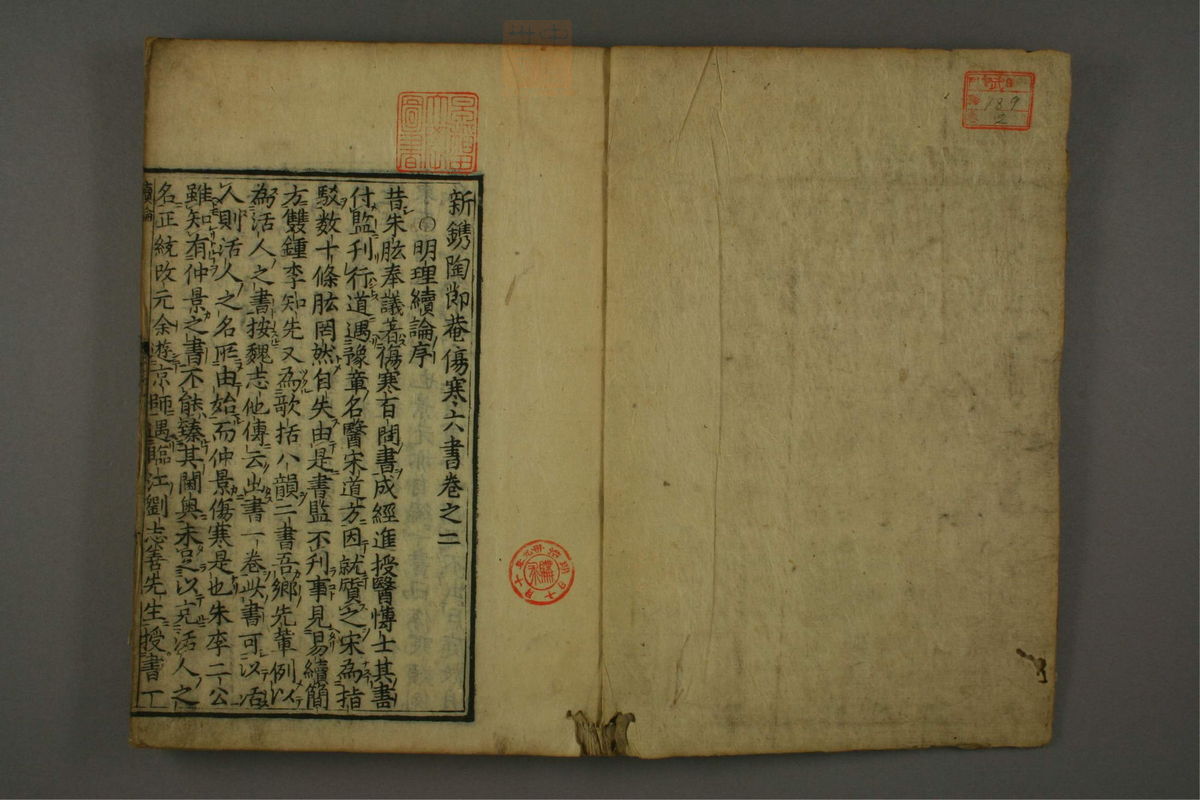 新鐫陶節菴傷寒六書卷之二
明理續論序
昔朱肱奉議著傷寒百問書成經進授醫愽士其書
付監刊行道遇豫章名醫宋道方因就質之宋為指
駁数十條肱罔然自失由是書監不刊事見易續簡
方雙鍾李知先又為歌括八韻二書吾鄉先輩例以
為活人之書按魏志他傳云出書一卷此書可以活
人則活人之名所由始而仲景傷寒是也朱李二公
雖知有仲景之書不能臻其閫奥未足以充活人之
名正統改元余遊京師遇臨江劉志善先生授書一
續論
189
2